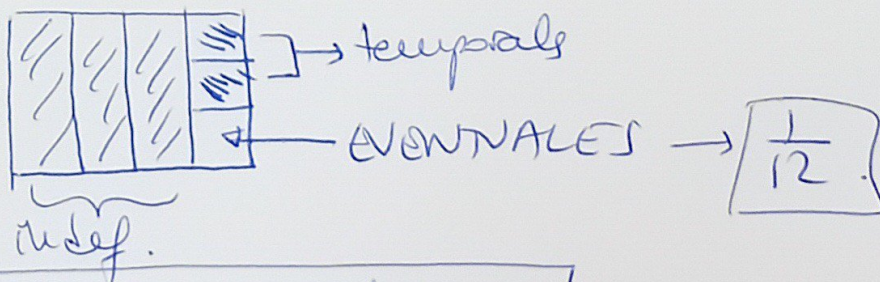 temporals
EVENTUALES
1/12
indef.